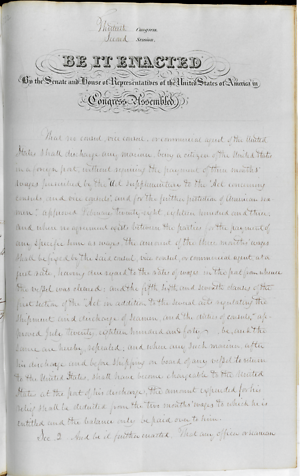 Congress
Second Session
BE IT ENACTED
By the Senate and House of Representatives of the United States of America in
Congress Assembled
That no consul, vice consul, or commercial agent of the United
States shall discharge any mariner, being a citizen of the United States
in a foreign port, without requiring the payment of three months'
wages required by the "Act supplementary to the Act concerning
consuls and vice consuls, and for the further protection of American sea
men" approved February twenty eight, eighteen hundred and three,
and when no agreement exists between the parties for the payment of
any specific sum as wages the amount of the three months' wages
shall be fixed by the said consul, vice consul, or commercial agent, at a
just rate, having due regard to the rates of wages in the port from whence
the vessel was cleared; and the fifth, sixth and clauses of the
first section of the Act in addition to the several acts regulating the
shipment and discharge of seamen, and the duties of consuls" ap
proved July twenty, eighteen hundred and forty, be, and the
same are hereby repealed; and when any such mariner, after
his discharge and before shipping on board of any vessel to return
to the United States, shall have become chargeable to the United
States at the port of his discharge, the amount expended for his
relief shall be deducted from the two months' wages to which he is
entitled and the balance only be paid over to him.
Sec. 2. And be it further enacted, That any officer or seaman